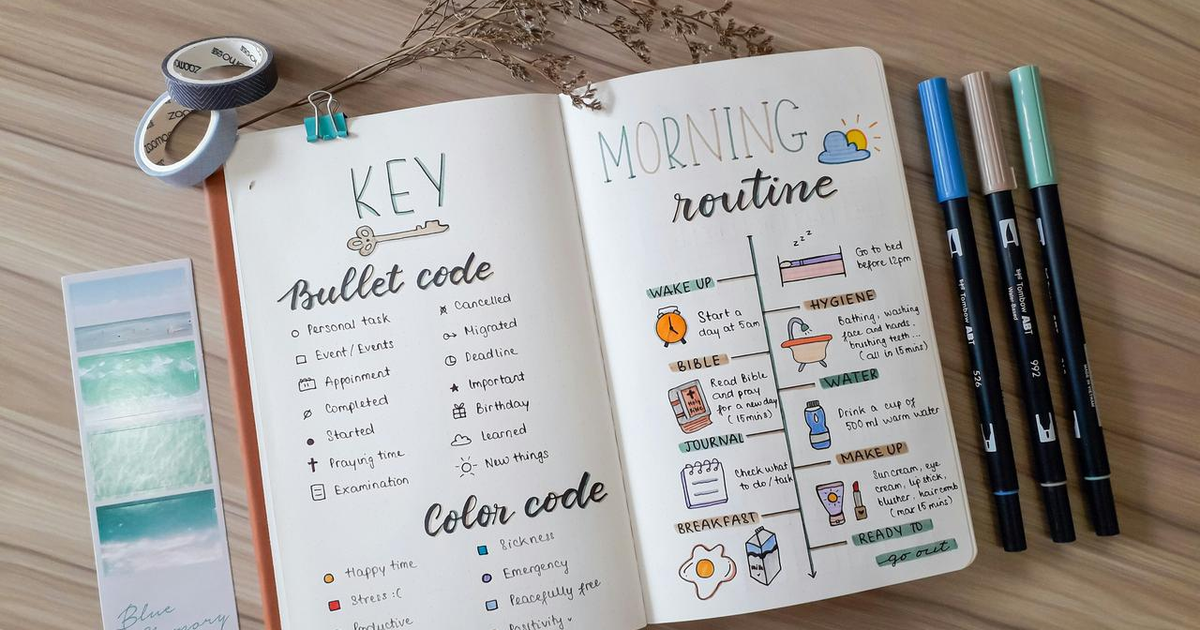 KEY
Bullet code
Personal task
Event/Events
Appoinment
Completed
Started
Praying time
Examination
Cancelled
Migrated
Deadline
Important
Birthday
learned
New things
Color code
Happy time
Stress :(
Productive
Sickness
Emergency
Peacefully free
Positivity
MORNING
routine
zzz
Go to bed
before 12pm
WAKE UP
Start a
day at 5am
HYGIENE
Bathing, washing
face and hands,
brushing teeth...
(all in 15mins)
BIBLE
HOLY
BIBLE
Read Bible
and pray
for a new day
(15mins)
WATER
Drink a cup of
500ml warm water
JOURNAL
Check what
to do/task
MAKE UP
Suncream, eye
cream, lip stick,
blusher, haircomb
(max 15 mins)
BREAKFAST
milk
READY TO
go out
Blue
Tombow ABT
526
Tombow ABT
Water Based
992